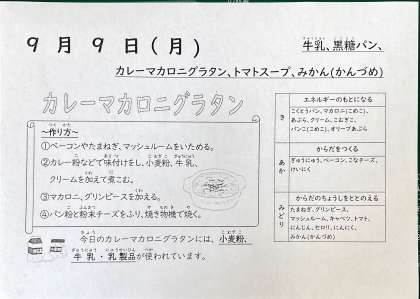 9月9日(月)
牛乳、黒糖パン、
カレーマカロニグラタン、トマトスープ、みかん(かんづめ)
カレーマカロニグラタン
～作り方～
①ベーコンやたまねぎ、マッシュルームをいためる。
②カレー粉などで味付けをし、小麦粉、牛乳、
クリームを加えて煮こむ。
③マカロニ、グリンピースを加える。
④パン粉と粉末チーズをふり、焼き物機で焼く。
今日のカレーマカロニグラタンには、小麦粉、
牛乳・乳製品が使われています。
き
エネルギーのもとになる
こくとうパン、マカロニ(こめこ)、
あぶら、クリーム、こむぎこ、
パンこ(こめこ)、オリーブあぶら
あか
からだをつくる
ぎゅうにゅう、ベーコン、こなチーズ、
けいにく
みどり
からだのちょうしをととのえる
たまねぎ、グリンピース、
マッシュルーム、キャベツ、トマト、
にんじん、セロリ、にんにく、
みかん(かんづめ)